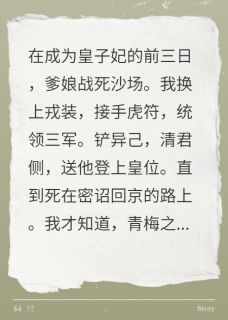 在成为皇子妃的前三日
，爹娘战死沙场。我换
上戎装，接手虎符，统
领三军。铲异己，清君
侧，送他登上皇位。直
到死在密诏回京的路上
。我才知道，青梅之...
Story